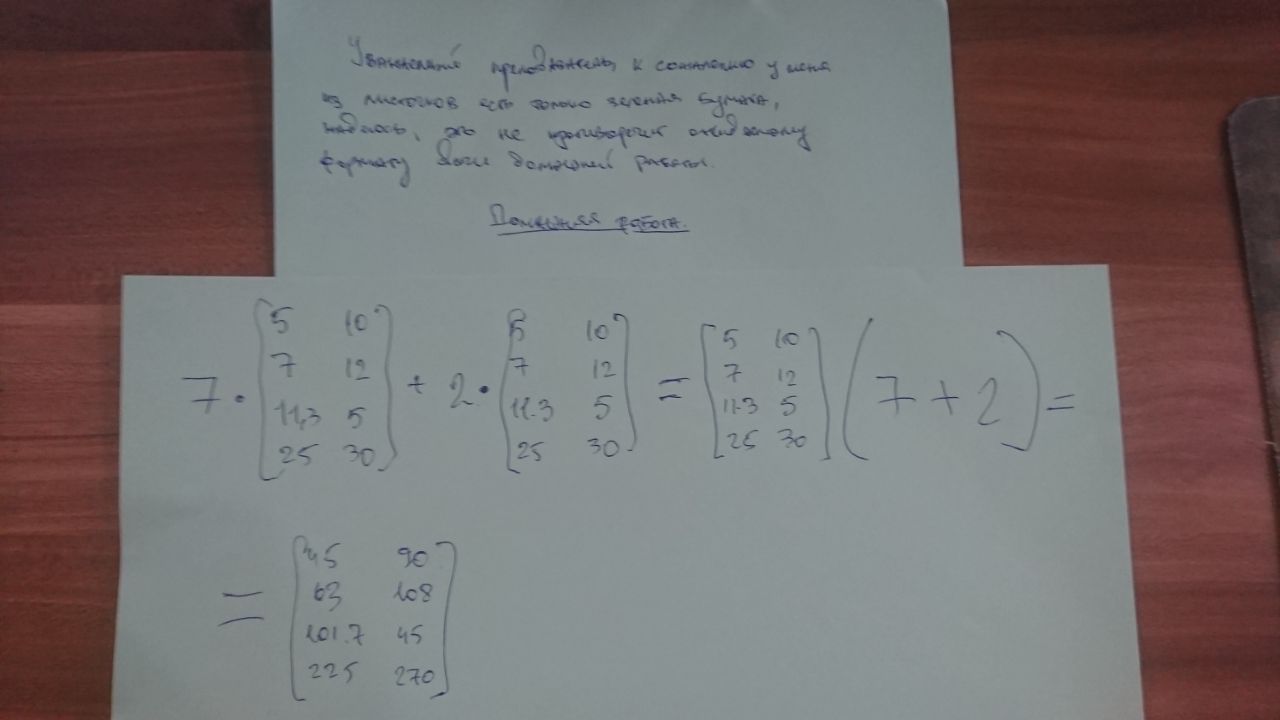 Уважаемый преподаватель, к сожалению у меня
из листочков есть только зеленая бумага,
надеюсь, это не противоречит ожидаемому
формату домашней работы.
Домашняя работа.
7 · [5 10; 7 12; 11,3 5; 25 30] + 2 · [5 10; 7 12; 11.3 5; 25 30] = [5 10; 7 12; 11.3 5; 25 30] (7 + 2) =
= [45 90; 63 108; 101.7 45; 225 270]